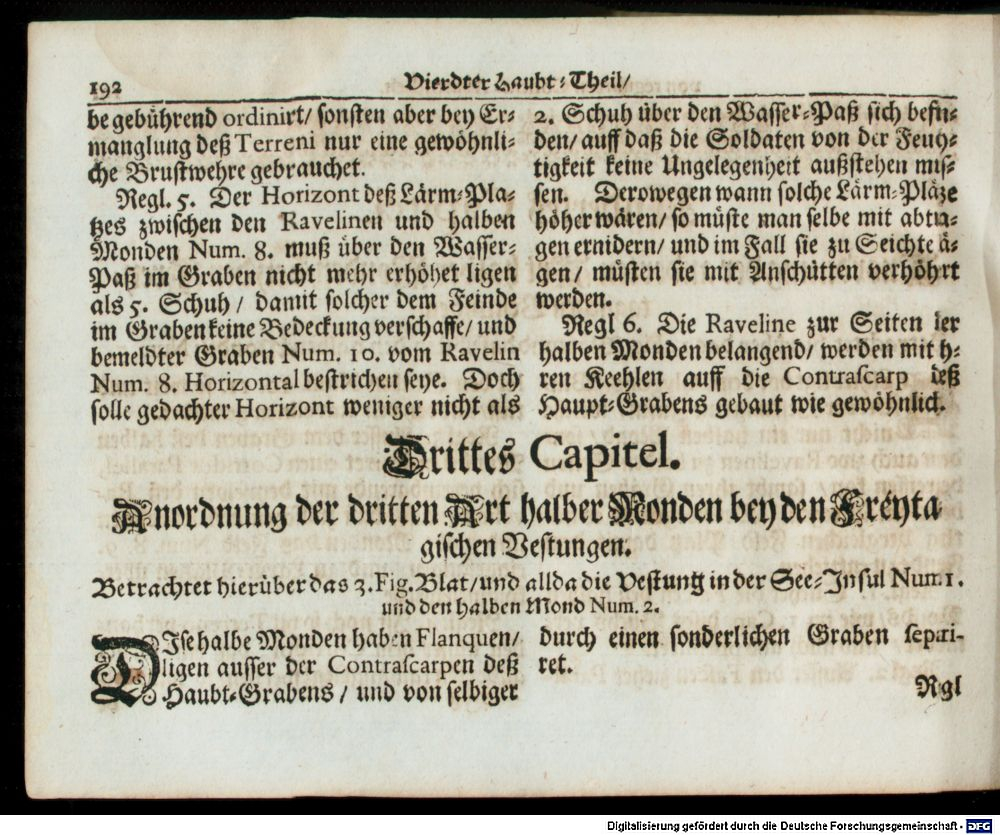 192
Vierdter Haubt-Theil/
be gebührend ordinirt/ sonsten aber bey Er-
manglung deß Terreni nur eine gewöhnli-
che Brustwehre gebrauchet.
Regl. 5. Der Horizont deß Lärm-Pla-
tzes zwischen den Ravelinen und halben
Monden Num. 8. muß über den Wasser-
Paß im Graben nicht mehr erhöhet ligen
als 5. Schuh / damit solcher dem Feinde
im Graben keine Bedeckung verschaffe/ und
bemeldter Graben Num. 10. vom Ravelin
Num. 8. Horizontal bestrichen seye. Doch
solle gedachter Horizont weniger nicht als
2. Schuh über den Wasser-Paß sich befin-
den/ auff daß die Soldaten von der Feuch-
tigkeit keine Ungelegenheit außstehen müs-
sen. Derowegen wann solche Lärm-Pläze
höher wären/ so müste man selbe mit abtra-
gen ernidern/ und im Fall sie zu Seichte ä-
gen/ müsten sie mit Anschütten verhöhrt
werden.
Regl 6. Die Raveline zur Seiten der
halben Monden belangend/ werden mit h-
ren Keehlen auff die Contrascarp deß
Haupt-Grabens gebaut wie gewöhnlich.
Drittes Capitel.
Anordnung der dritten Art halber Monden bey den Freyta
gischen Vestungen.
Betrachtet hierüber das 3. Fig. Blat/ und allda die Vestung in der See-Insul Num. 1.
und den halben Mond Num. 2.
DIse halbe Monden haben Flanquen/
ligen ausser der Contrascarpen deß
Haubt-Grabens / und von selbiger
durch einen sonderlichen Graben separi-
ret.
Rgl
Digitalisierung gefördert durch die Deutsche Forschungsgemeinschaft - DFG